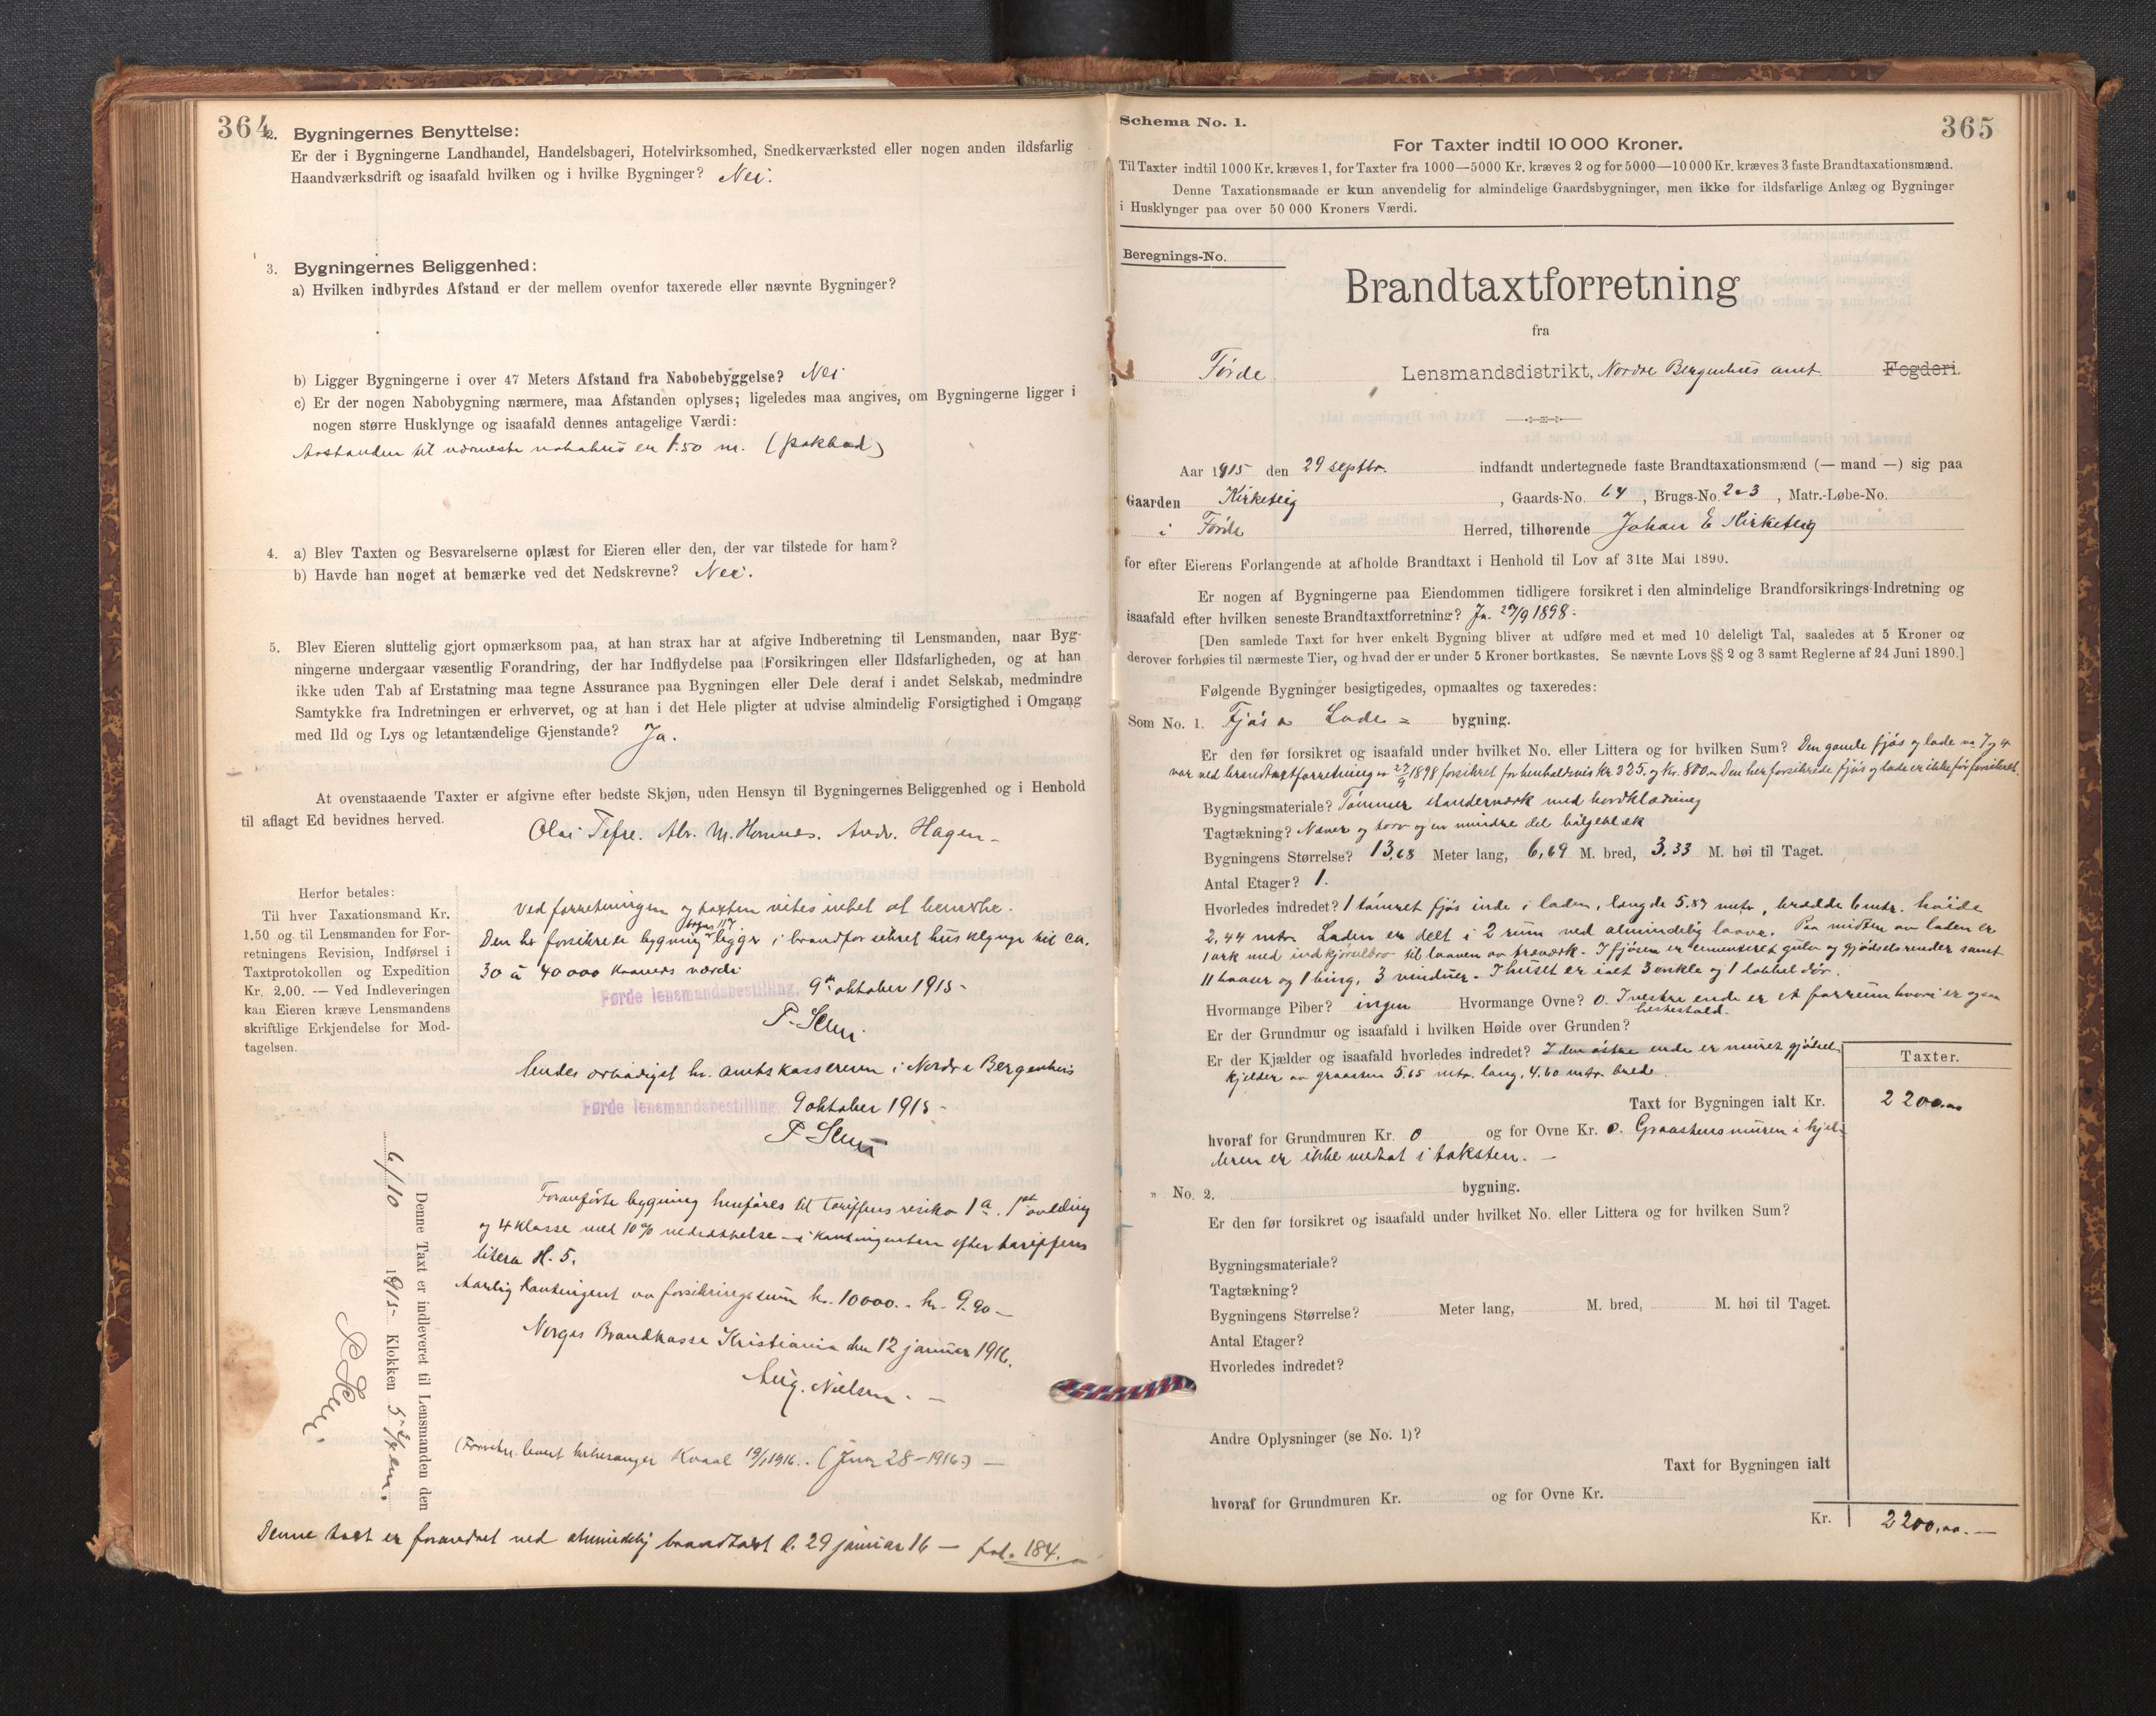 364
2. Bygningernes Benyttelse:
Er der i Bygningerne Landhandel, Handelsbageri, Hotelvirksomhed, Snedkerværksted eller nogen anden ildsfarlig
Haandværksdrift og isaafald hvilken og i hvilke Bygninger? Nei.
3. Bygningernes Beliggenhed:
a) Hvilken indbyrdes Afstand er der mellem ovenfor taxerede eller nævnte Bygninger?
b) Ligger Bygningerne i over 47 Meters Afstand fra Nabobebyggelse? Nei
c) Er der nogen Nabobygning nærmere, maa Afstanden oplyses; ligeledes maa angives, om Bygningerne ligger i
nogen større Husklynge og isaafald dennes antagelige Værdi:
Avstanden til nærmeste nabohus er 1.50 m.
4. a) Blev Taxten og Besvarelserne oplæst for Eieren eller den, der var tilstede for ham?
b) Havde han noget at bemærke ved det Nedskrevne? Nei.
5. Blev Eieren sluttelig gjort opmærksom paa, at han strax har at afgive Indberetning til Lensmanden, naar Byg-
ningerne undergaar væsentlig Forandring, der har Indflydelse paa Forsikringen eller Ildsfarligheden, og at han
ikke uden Tab af Erstatning maa tegne Assurance paa Bygningen eller Dele deraf i andet Selskab, medmindre
Samtykke fra Indretningen er erhvervet, og at han i det Hele pligter at udvise almindelig Forsigtighed i Omgang
med Ild og Lys og letantændelige Gjenstande? Ja.
At ovenstaaende Taxter er afgivne efter bedste Skjøn, uden Hensyn til Bygningernes Beliggenhed og i Henhold
til aflagt Ed bevidnes herved.
Olai Tefre. Alr. M. Hornnes. Andr. Hagen
Herfor betales:
Til hver Taxationsmand Kr.
1.50 og til Lensmanden for For-
retningens Revision, Indførsel i
Taxtprotokollen og Expedition
Kr. 2.00. — Ved Indleveringen
kan Eieren kræve Lensmandens
skriftlige Erkjendelse for Mod-
tagelsen.
Ved forretningen og taxten vites intet at bemerke.
Den her forsikrede bygning ligger i brandforsikret husklynge til ca.
30 à 40000 kroners værdi
Førde lensmandsbestilling, 9de oktober 1915
Sendes ærbødigst hr. amtskassereren i Nordre Bergenhus
Førde lensmandsbestilling, 9 oktober 1915
Denne Taxt er indleveret til Lensmanden den
6/10 1915 Klokken 5 em.
Foranførte bygning henføres til tariffens risiko 1 a. 1ste avdeling
og 4 klasse med 10% nedsættelse i kontingenten efter tariffens
litera H. 5.
Aarlig kontingent av forsikringssum kr. 10000.. kr. 9.90
Norges Brandkasse Kristiania den 12 januar 1916.
Aug. Nielsen.
Denne taxt er forandret ved almindelig brandtaxt d. 29 januar 16 — fol. 184.
365
Schema No. 1.
For Taxter indtil 10 000 Kroner.
Til Taxter indtil 1000 Kr. kræves 1, for Taxter fra 1000—5000 Kr. kræves 2 og for 5000—10 000 Kr. kræves 3 faste Brandtaxationsmænd.
Denne Taxationsmaade er kun anvendelig for almindelige Gaardsbygninger, men ikke for ildsfarlige Anlæg og Bygninger
i Husklynger paa over 50 000 Kroners Værdi.
Beregnings-No.
Brandtaxtforretning
fra
Førde Lensmandsdistrikt, Nordre Bergenhus amt Fogderi.
Aar 1915 den 29 septbr. indfandt undertegnede faste Brandtaxationsmænd (— mand —) sig paa
Gaarden Kirketeig, Gaards-No. 64, Brugs-No. 2 & 3, Matr.-Løbe-No.
i Førde Herred, tilhørende Johan E Kirketeig
for efter Eierens Forlangende at afholde Brandtaxt i Henhold til Lov af 31te Mai 1890.
Er nogen af Bygningerne paa Eiendommen tidligere forsikret i den almindelige Brandforsikrings-Indretning og
isaafald efter hvilken seneste Brandtaxtforretning? Ja. 27/9 1898.
[Den samlede Taxt for hver enkelt Bygning bliver at udføre med et med 10 deleligt Tal, saaledes at 5 Kroner og
derover forhøies til nærmeste Tier, og hvad der er under 5 Kroner bortkastes. Se nævnte Lovs §§ 2 og 3 samt Reglerne af 24 Juni 1890.]
Følgende Bygninger besigtigedes, opmaaltes og taxeredes:
Som No. 1. Fjøs & Lade = bygning.
Er den før forsikret og isaafald under hvilket No. eller Littera og for hvilken Sum? Den gamle fjøs og lade no 7 og 4
var ved brandtaxtforretning av 27/9 1898 forsikret for henholdsvis kr. 325. og kr. 800. Den her forsikrede fjøs og lade er ikke før forsikret.
Bygningsmateriale? Tømmer standerværk med bordklædning
Tagtækning? Næver og torv og en mindre del bølgeblæk
Bygningens Størrelse? 13,68 Meter lang, 6,69 M. bred, 3.33 M. høi til Taget.
Antal Etager? 1.
Hvorledes indredet? 1 tømret fjøs inde i laden, længde 5.87 mtr, bredde 6 mtr. høide
2,44 mtr. Laden er delt i 2 rum ved almindelig laave. Paa midten av laden er
1 ark med indkjørselbro til laaven av træværk. I fjøsen er cementeret gulv og gjødselsrender samt
11 baaser og 1 bing, 3 vinduer. I huset er ialt 3 enkle og 1 dobbel dør.
Hvormange Piber? ingen Hvormange Ovne? 0. I vestre ende er et forrum hvori er ogsaa
hestestald.
Er der Grundmur og isaafald i hvilken Høide over Grunden?
Er der Kjælder og isaafald hvorledes indredet? I den østre ende er muret gjødsel-
kjelder av graasten 5.65 mtr. lang, 4.60 mtr. brede.
Taxter.
Taxt for Bygningen ialt Kr. 2200.00
hvoraf for Grundmuren Kr. 0 og for Ovne Kr. 0. Graastensmuren i kjel-
deren er ikke medtat i taksten. —
„ No. 2. bygning.
Er den før forsikret og isaafald under hvilket No. eller Littera og for hvilken Sum?
Bygningsmateriale?
Tagtækning?
Bygningens Størrelse? Meter lang, M. bred, M. høi til Taget.
Antal Etager?
Hvorledes indredet?
Andre Oplysninger (se No. 1)?
Taxt for Bygningen ialt
hvoraf for Grundmuren Kr. og for Ovne Kr.
Kr. 2200,00. —